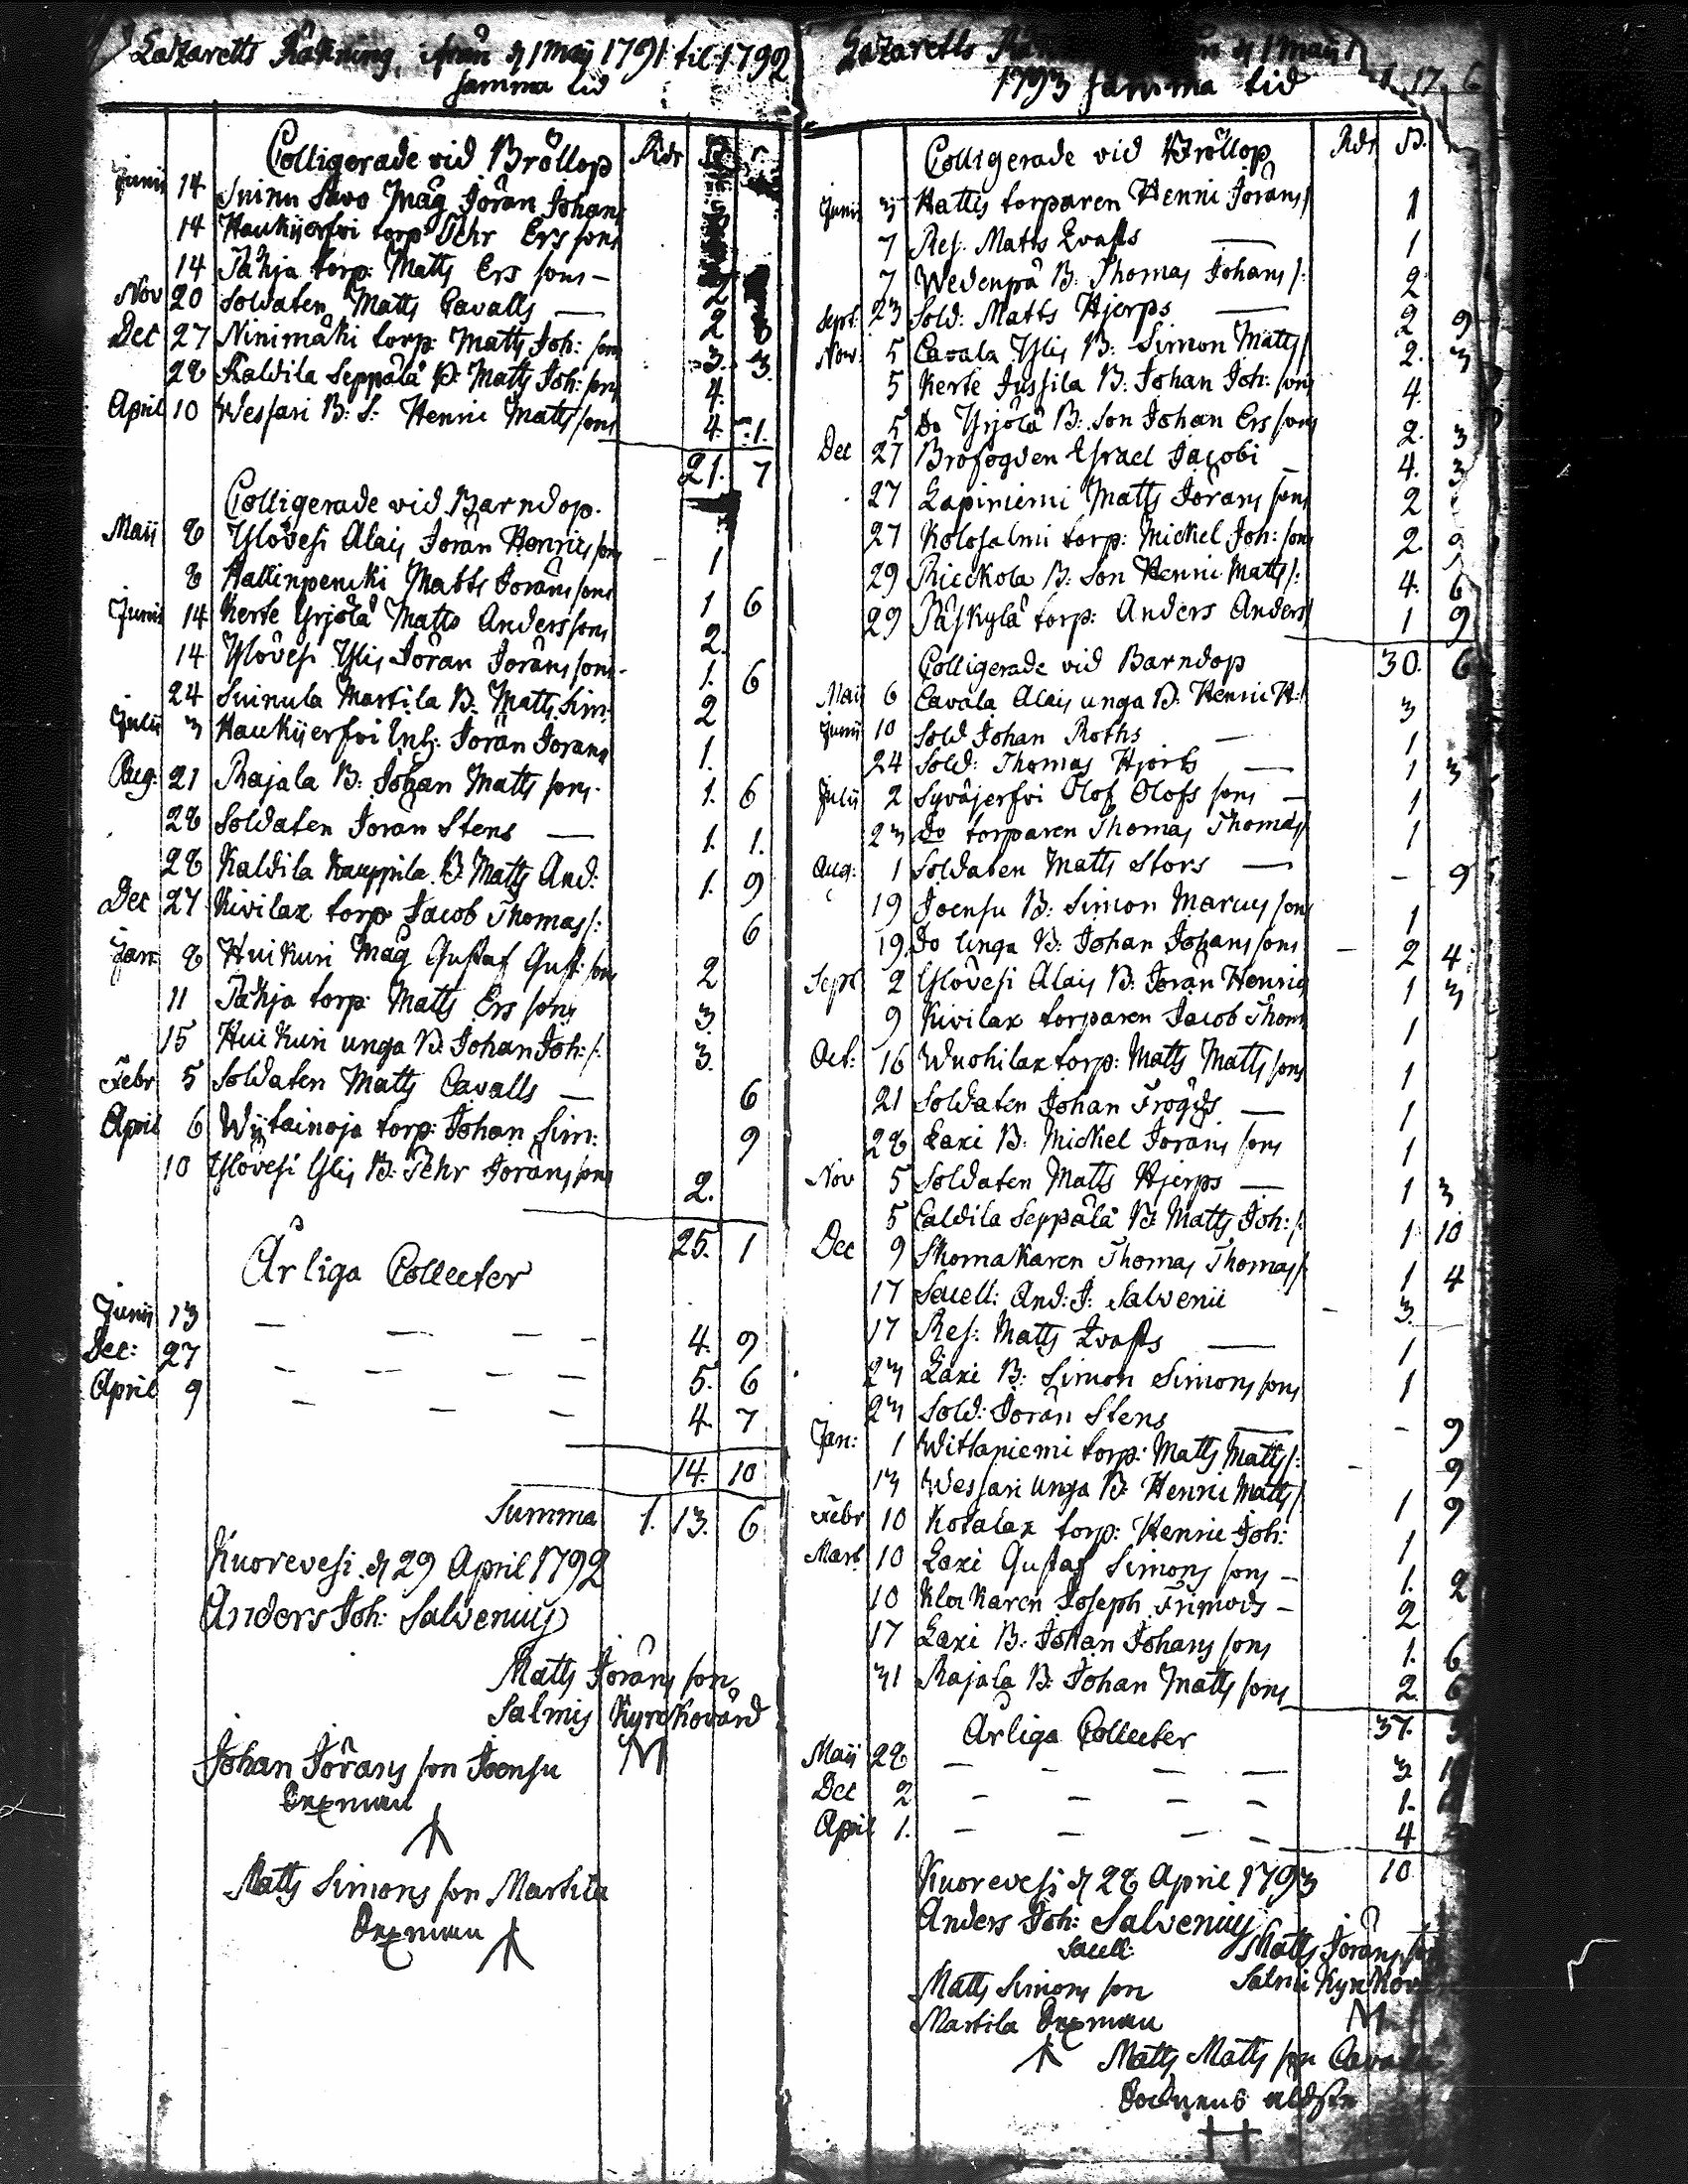 Lazaretts Räkning ifrån d 1 Maij 1791 til 1792
samma tid
Colligerade vid Bröllop Rdr
Junii 14 Suinu Savo Måg Jöran Johans
14 Haukijerfvi torp Pehr Ers sons
14 Päkja torp: Matts Ers sons — 2
Nov 20 Soldaten Matts Cavalls — 2
Dec 27 Ninimäki torp: Matts Joh: sons 3. 3.
28 Kaldila Seppälä B: Matts Joh: sons 4.
April 10 Wessari B: S: Henric Matts sons 4. 1.
21. 7
Colligerade vid Barndop.
Maij 8 Ylövesi Alais Jöran Henrics sons 1
8 Hallinpencki Matts Jörans sons 1 6
Junii 14 Kerte Yrjölä Matts Anders sons 2.
14 Ylövesi Ylis Jöran Jörans sons 1. 6
24 Suinula Martila B: Matts Sim: 2
Julii 3 Haukijerfvi Inh: Jöran Jörans 1.
Aug: 21 Rajala B: Johan Matts sons 1. 6
28 Soldaten Jöran Stens — 1. 1.
28 Kaldila Kauppila B: Matts And: 1. 9
Dec 27 Kivilax torp Jacob Thomas s: 6
Jan: 8 Huikuri Måg Gustaf Gust: sons 2
11 Päkja torp: Matts Ers sons 3.
15 Huikuri unga B: Johan Joh: s: 3.
Febr 5 Soldaten Matts Cavalls — 6
April 6 Wijtainoja torp: Johan Sim: 9
10 Ylövesi Ylis B: Pehr Jörans sons 2.
25. 1
Årliga Collecter
Junii 13 — — — — 4. 9
Dec: 27 — — — — 5. 6
April 9 — — — 4. 7
14. 10
Summa 1. 13. 6
Kuorevesi d 29 April 1792
Anders Joh: Salvenius
Matts Jörans son
Salmis Kyrckovärd
Johan Jörans son Joensu
Sexman
Matts Simons son Martila
Sexman
Lazaretts d 1 Maij
1793 samma tid
Colligerade vid Bröllop Rdr
Junii 3 Hattis torparen Henric Jörans s 1
7 Res: Matts Qvasts — 1
7 Wedenpä B: Thomas Johans s: 2
Sept: 23 Sold: Matts Hjerps — 2 9
Nov: 5 Cavala Ylis B: Simon Matts s 2. 3
5 Kerte Jussila B: Johan Joh: sons 4.
5 Do Yrjölä B: Son Johan Ers sons 2. 3
Dec 27 Brofogden Israel Jacobi — 4. 3
27 Lapiniemi Matts Jörans sons 2
27 Kolosalmi torp: Mickel Joh: sons 2. 9
29 Rieckola B: Son Henric Matts s: 4. 6
29 Päskylä torp: Anders Anders s 1 9
Colligerade vid Barndop 30. 6
Maij 6 Cavala Alais unga B: Henric H: s 3
Junii 10 Sold Johan Roths — 1
24 Sold: Thomas Hjorts — 1 3
Julii 2 Syväjerfvi Olof Olofs sons — 1
23 Do torparen Thomas Thomas s 1
Aug: 1 Soldaten Matts Stors — - 9
19 Joensu B: Simon Marcus sons 1
19 Do Unga B: Johan Johans sons — 2 4
Sept 2 Ylövesi Alais B: Jöran Henrics 1 3
9 Kivilax torparen Jacob Thom 1
Oct: 16 Wuohilax torp: Matts Matts sons 1
21 Soldaten Johan Frögds — 1
28 Laxi B: Mickel Jörans sons 1
Nov 5 Soldaten Matts Hjerps — 1 3
5 Caldila Seppälä B: Matts Joh: s 1 10
Dec 9 Skomakaren Thomas Thomas s 1 4
17 Sacell: And: J: Salvenii — 3.
17 Res: Matts Qvasts — 1
23 Laxi B: Simon Simons sons 1
23 Sold: Jöran Stens — - 9
Jan: 1 Witlaniemi torp: Matts Matts s: - 9
13 Wessari unga B: Henric Matts s 1 9
Febr 10 Kotalax torp: Henric Joh: 1
Mart 10 Laxi Gustaf Simons sons — 1. 2
10 Klockaren Joseph Frimods — 2
17 Laxi B: Johan Johans sons 1. 6
31 Rajala B: Johan Matts sons 2. 6
Årliga Collecter 37.
Maij 28 — — — — 3
Dec 2 — — — — 1.
April 1. — — — — 4
10
Kuorevesi d 28 April 1793
Anders Joh: Salvenius
Sacell:
Matts Jörans son
Salmis
Matts Simons son
Martila Sexman
Matts Matts son Cavala